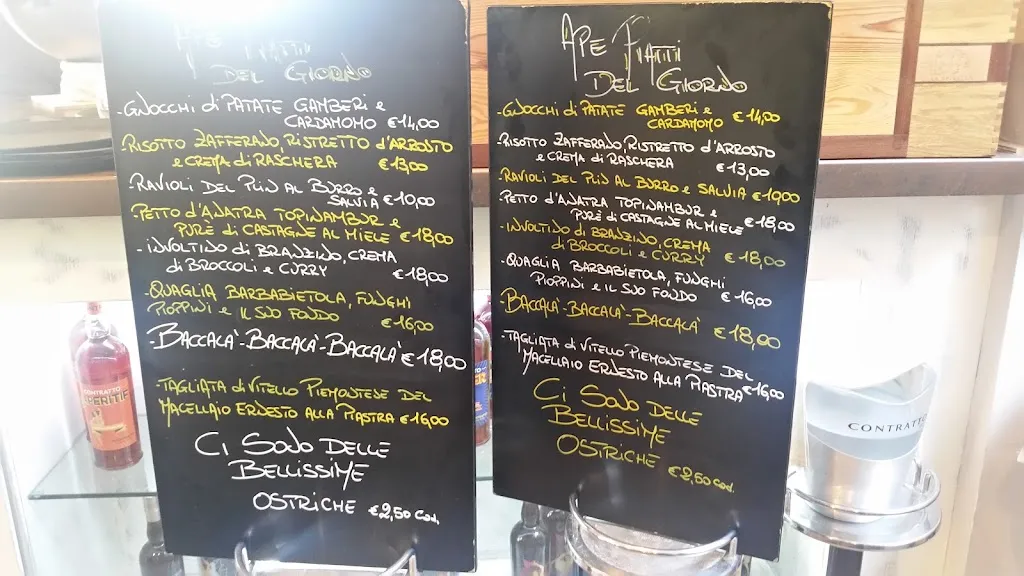 APE PIATTI
DEL GIORNO
-GNOCCHI di PATATE GAMBERI e
CARDAMOMO €14,00
-RISOTTO ZAFFERANO, RISTRETTO D'ARROSTO
e CREMA di RASCHERA €13,00
-RAVIOLI DEL PLIN AL BURRO e
SALVIA €10,00
-PETTO D'ANATRA TOPINAMBUR e
PURÈ di CASTAGNE AL MIELE €18,00
-INVOLTINO di BRANZINO, CREMA
di BROCCOLI e CURRY €18,00
-QUAGLIA BARBABIETOLA, FUNGHI
PIOPPINI e IL SUO FONDO €16,00
-BACCALÀ-BACCALÀ-BACCALÀ €18,00
-TAGLIATA di VITELLO PIEMONTESE DEL
MACELLAIO ERNESTO ALLA PIASTRA €16,00
CI SONO DELLE
BELLISSIME
OSTRICHE €2,50 Cad.
APE PIATTI
DEL GIORNO
-GNOCCHI di PATATE GAMBERI e
CARDAMOMO €14,00
-RISOTTO ZAFFERANO, RISTRETTO D'ARROSTO
e CREMA di RASCHERA €13,00
-RAVIOLI DEL PLIN AL BURRO e SALVIA €10,00
-PETTO D'ANATRA TOPINAMBUR e
PURÈ di CASTAGNE AL MIELE €18,00
-INVOLTINO di BRANZINO, CREMA
di BROCCOLI e CURRY €18,00
-QUAGLIA BARBABIETOLA, FUNGHI
PIOPPINI e IL SUO FONDO €16,00
-BACCALÀ-BACCALÀ-BACCALÀ €18,00
-TAGLIATA di VITELLO PIEMONTESE DEL
MACELLAIO ERNESTO ALLA PIASTRA €16,00
CI SONO DELLE
BELLISSIME
OSTRICHE €2,50 Cad.
CONTRATTO
APERITIF
CONTRATTO